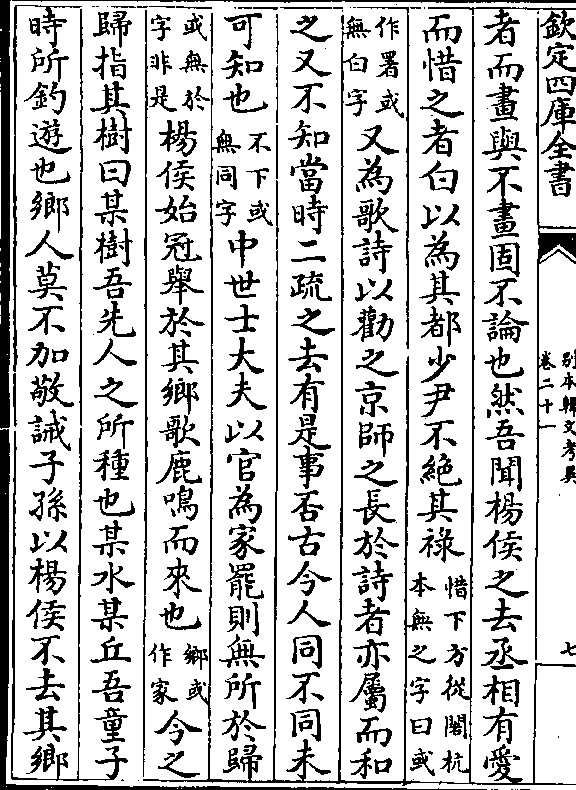 欽定四庫全書
別本韓文考異
卷二十一
七
者而畫與不畫固不論也然吾聞楊侯之去丞相有愛
而惜之者白以為其都少尹不絶其祿惜下方從閣杭本無之字曰或
作署或無白字又為歌詩以勸之京師之長於詩者亦屬而和
之又不知當時二疏之去有是事否古今人同不同未
可知也不下或無同字中世士大夫以官為家罷則無所於歸
或無於字非是楊侯始冠舉於其鄉歌鹿鳴而來也鄉或作家今之
歸指其樹曰某樹吾先人之所種也某水某丘吾童子
時所釣遊也鄉人莫不加敬誡子孫以楊侯不去其鄉